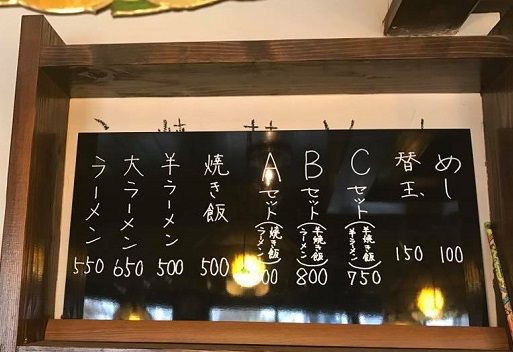 ラーメン 550
大ラーメン 650
半ラーメン 500
焼き飯 500
Aセット(焼き飯 ラーメン)
Bセット(半焼き飯 ラーメン) 800
Cセット(半焼き飯 半ラーメン) 750
替玉 150
めし 100